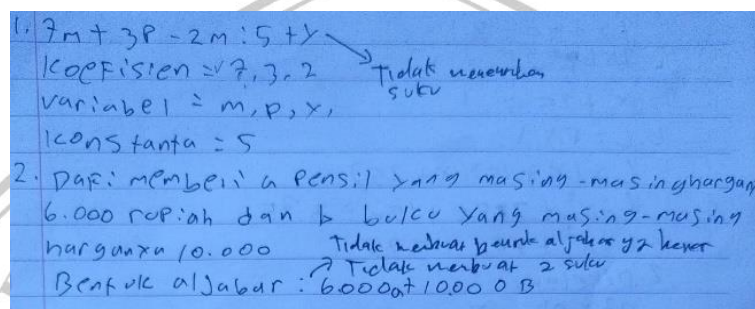 1. 7m + 3P - 2m : 5 + y
Koefisien = 7, 3, 2
Tidak menemukan
suku
variabel = m, p, y,
Konstanta = 5
2. Dafi membeli a Pensil yang masing-masing hargan
6.000 rupiah dan b buku yang masing-masing
harganya 10.000
Tidak membuat bentuk aljabar yg benar
Tidak membuat 2 suku
Bentuk aljabar : 6.000a + 10.000 B